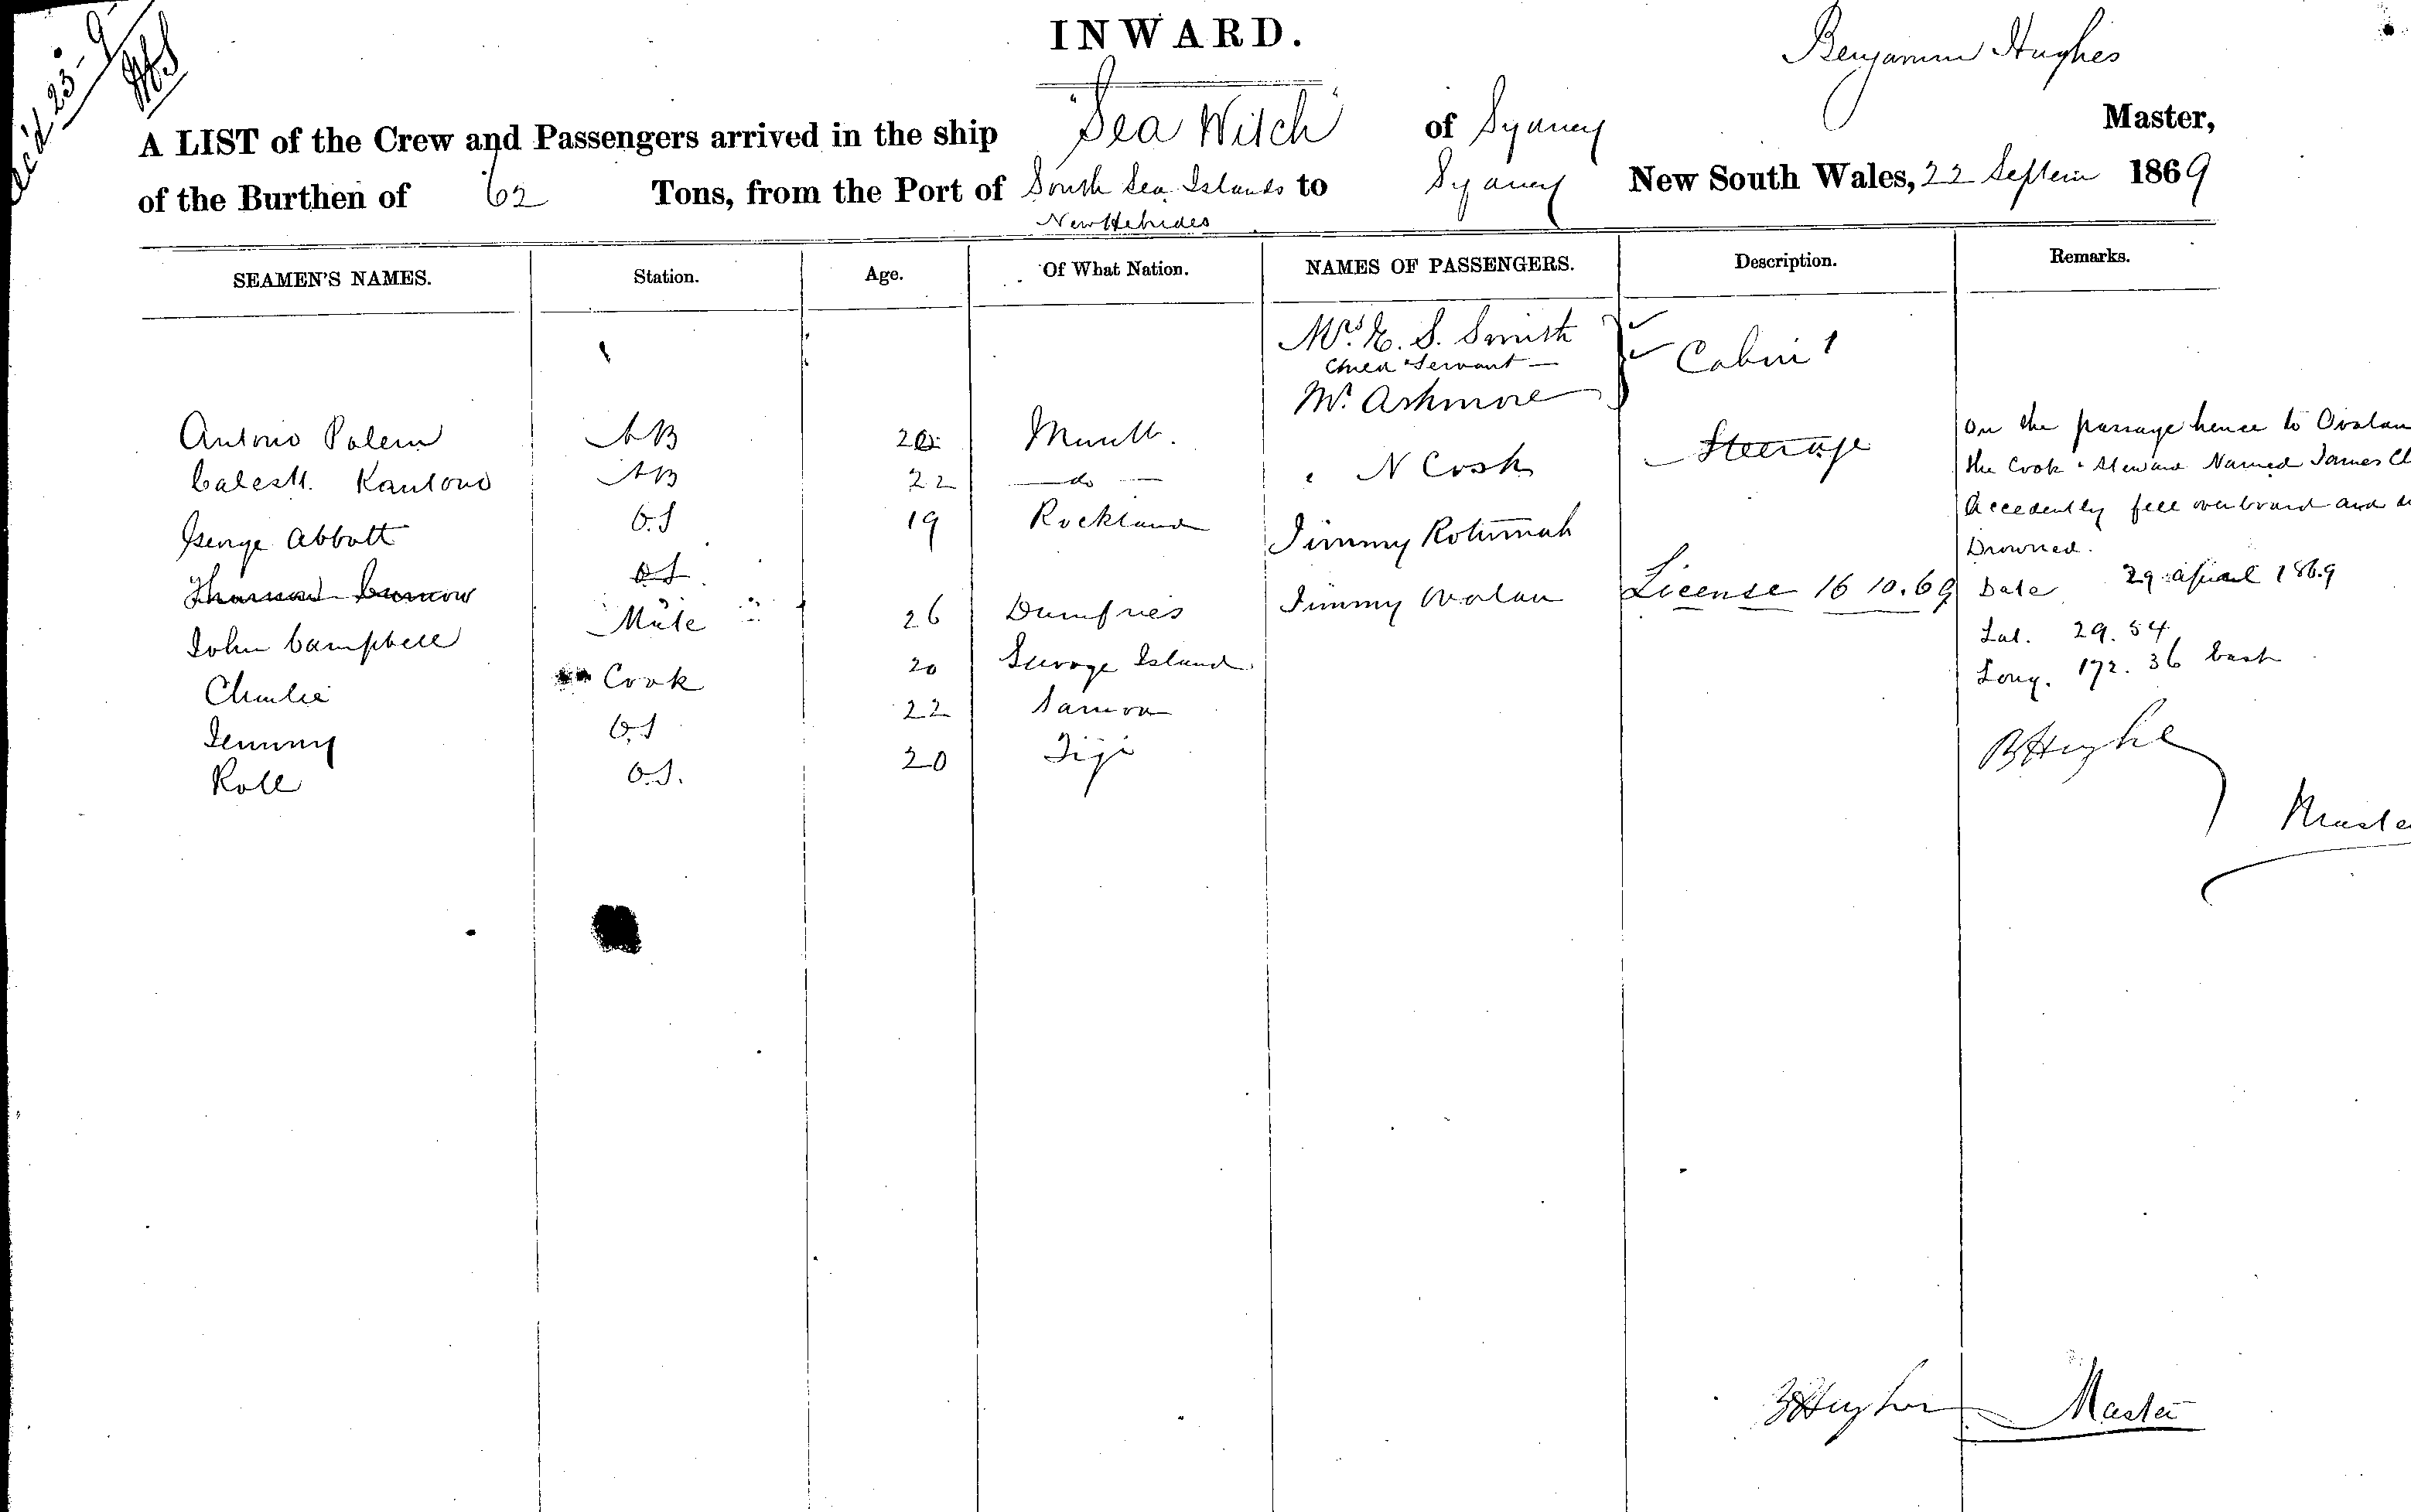 INWARD.
Benjamin Hughes
A LIST of the Crew and Passengers arrived in the ship "Sea Witch" of Sydney Master,
of the Burthen of 62 Tons, from the Port of South Sea Islands to Sydney New South Wales, 22 Septem 1869
New Hebrides
SEAMEN'S NAMES. Station. Age. Of What Nation. NAMES OF PASSENGERS. Description. Remarks.
Mrs. E. S. Smith
Servant
Cabin
Mr. Ashmore
Antonio AB
AB 22 do
George Abbott O.S 19 Rockland
O.S
John Campbell Mate 26 Dumfries
Charlie Cook 20 Savage Island
Jemmy O.S 22 Samoa
O.S. 20 Fiji
N Cosh Steerage
Jimmy Rotumah
Jimmy Ovalau License 16 10.69
On the passage hence to Ovalau
the Cook & Steward Named James
Accedently fell overboard and
Drowned.
Date 29 April 1869
Lat. 29.54
Long. 172.36 East
B Hughes
Master
B Hughes Master